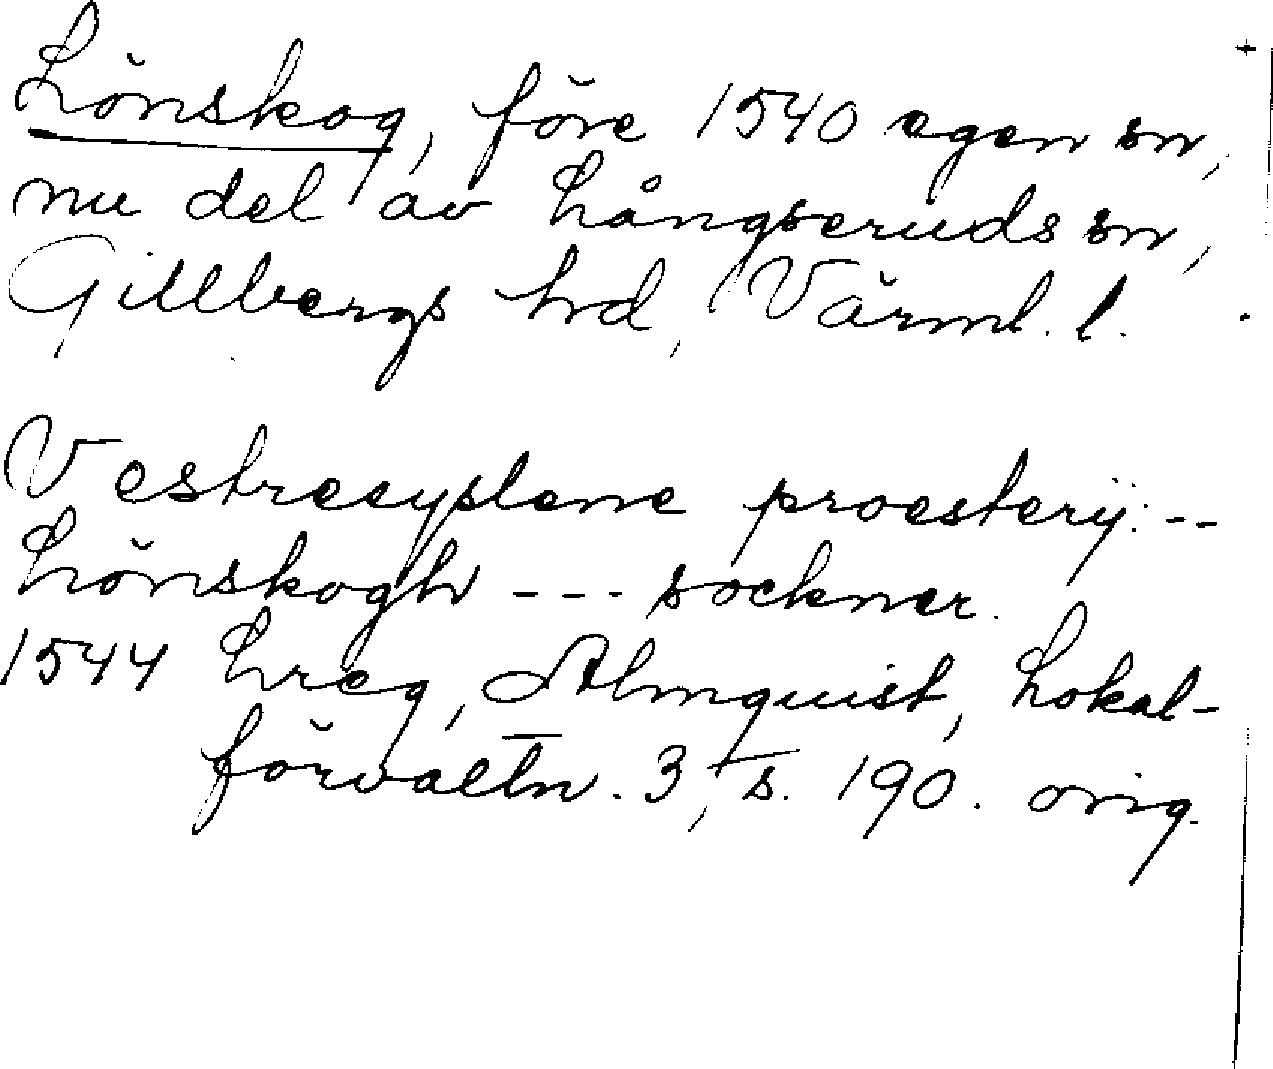 Lönskog, före 1540 egen sn,
nu del av Långseruds sn,
Gillbergs hd, Värml. l.
Vestresyslene proesterij: --
Lönskogh --- sockner.
1544 Lreg, Almquist, Lokal-
förvaltn. 3, s. 190. orig.